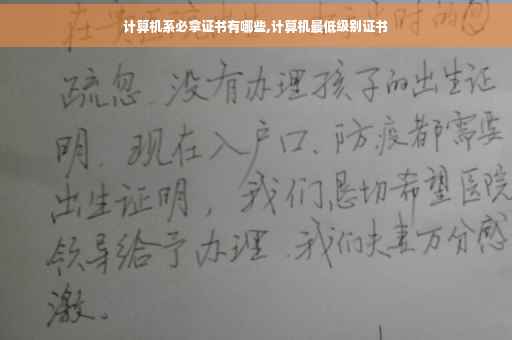 计算机系必拿证书有哪些,计算机最低级别证书
疏忽、没有办理孩子的出生证
明、现在入户口、防疫都需要
出生证明，我们恳切希望医院
领导给予办理、我们夫妻万分感
激。